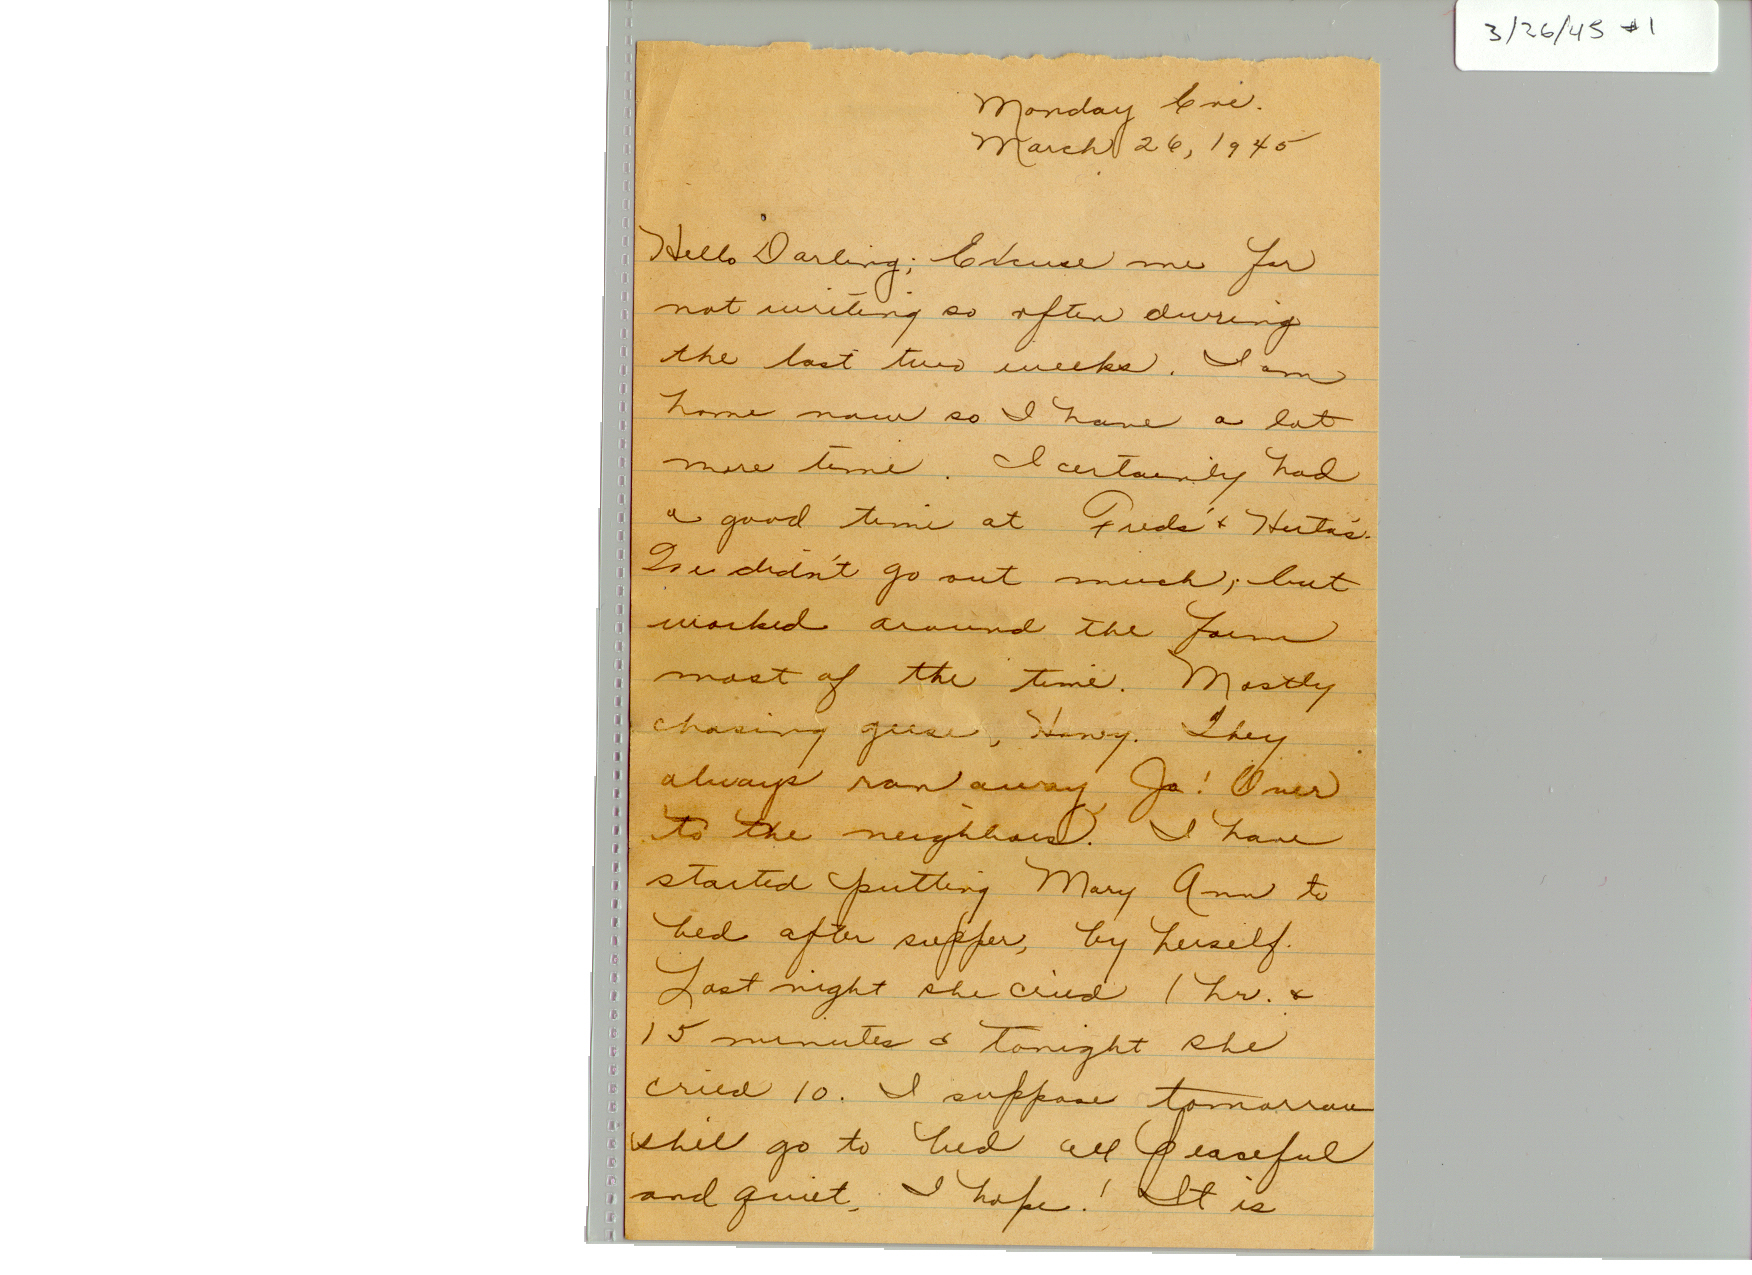 3/26/45 #1
Monday Eve.
March 26, 1945
Hello Darling; Excuse me for
not writing so often during
the last two weeks. I am
home now so I have a lot
more time. I certainly had
a good time at Freds' & Hertas'.
We didn't go out much, but
worked around the farm
most of the time. Mostly
chasing geese, Honey. They
always ran away Ja! Over
to the neighbors. I have
started putting Mary Ann to
bed after supper, by herself.
Last night she cried 1 hr. &
15 minutes & tonight she
cried 10. I suppose tomorrow
she'll go to bed all peaseful
and quiet, I hope! It is